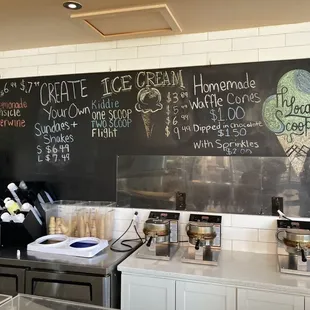 6 $7
CREATE
Your Own
Sundaes +
Shakes
S $6.49
L $7.49
ICE CREAM
Kiddie
ONE SCOOP
TWO SCOOP
Flight
Homemade
Waffle Cones
$1.00
Dipped in chocolate
$1.50
With Sprinkles
The
Local
Scoop